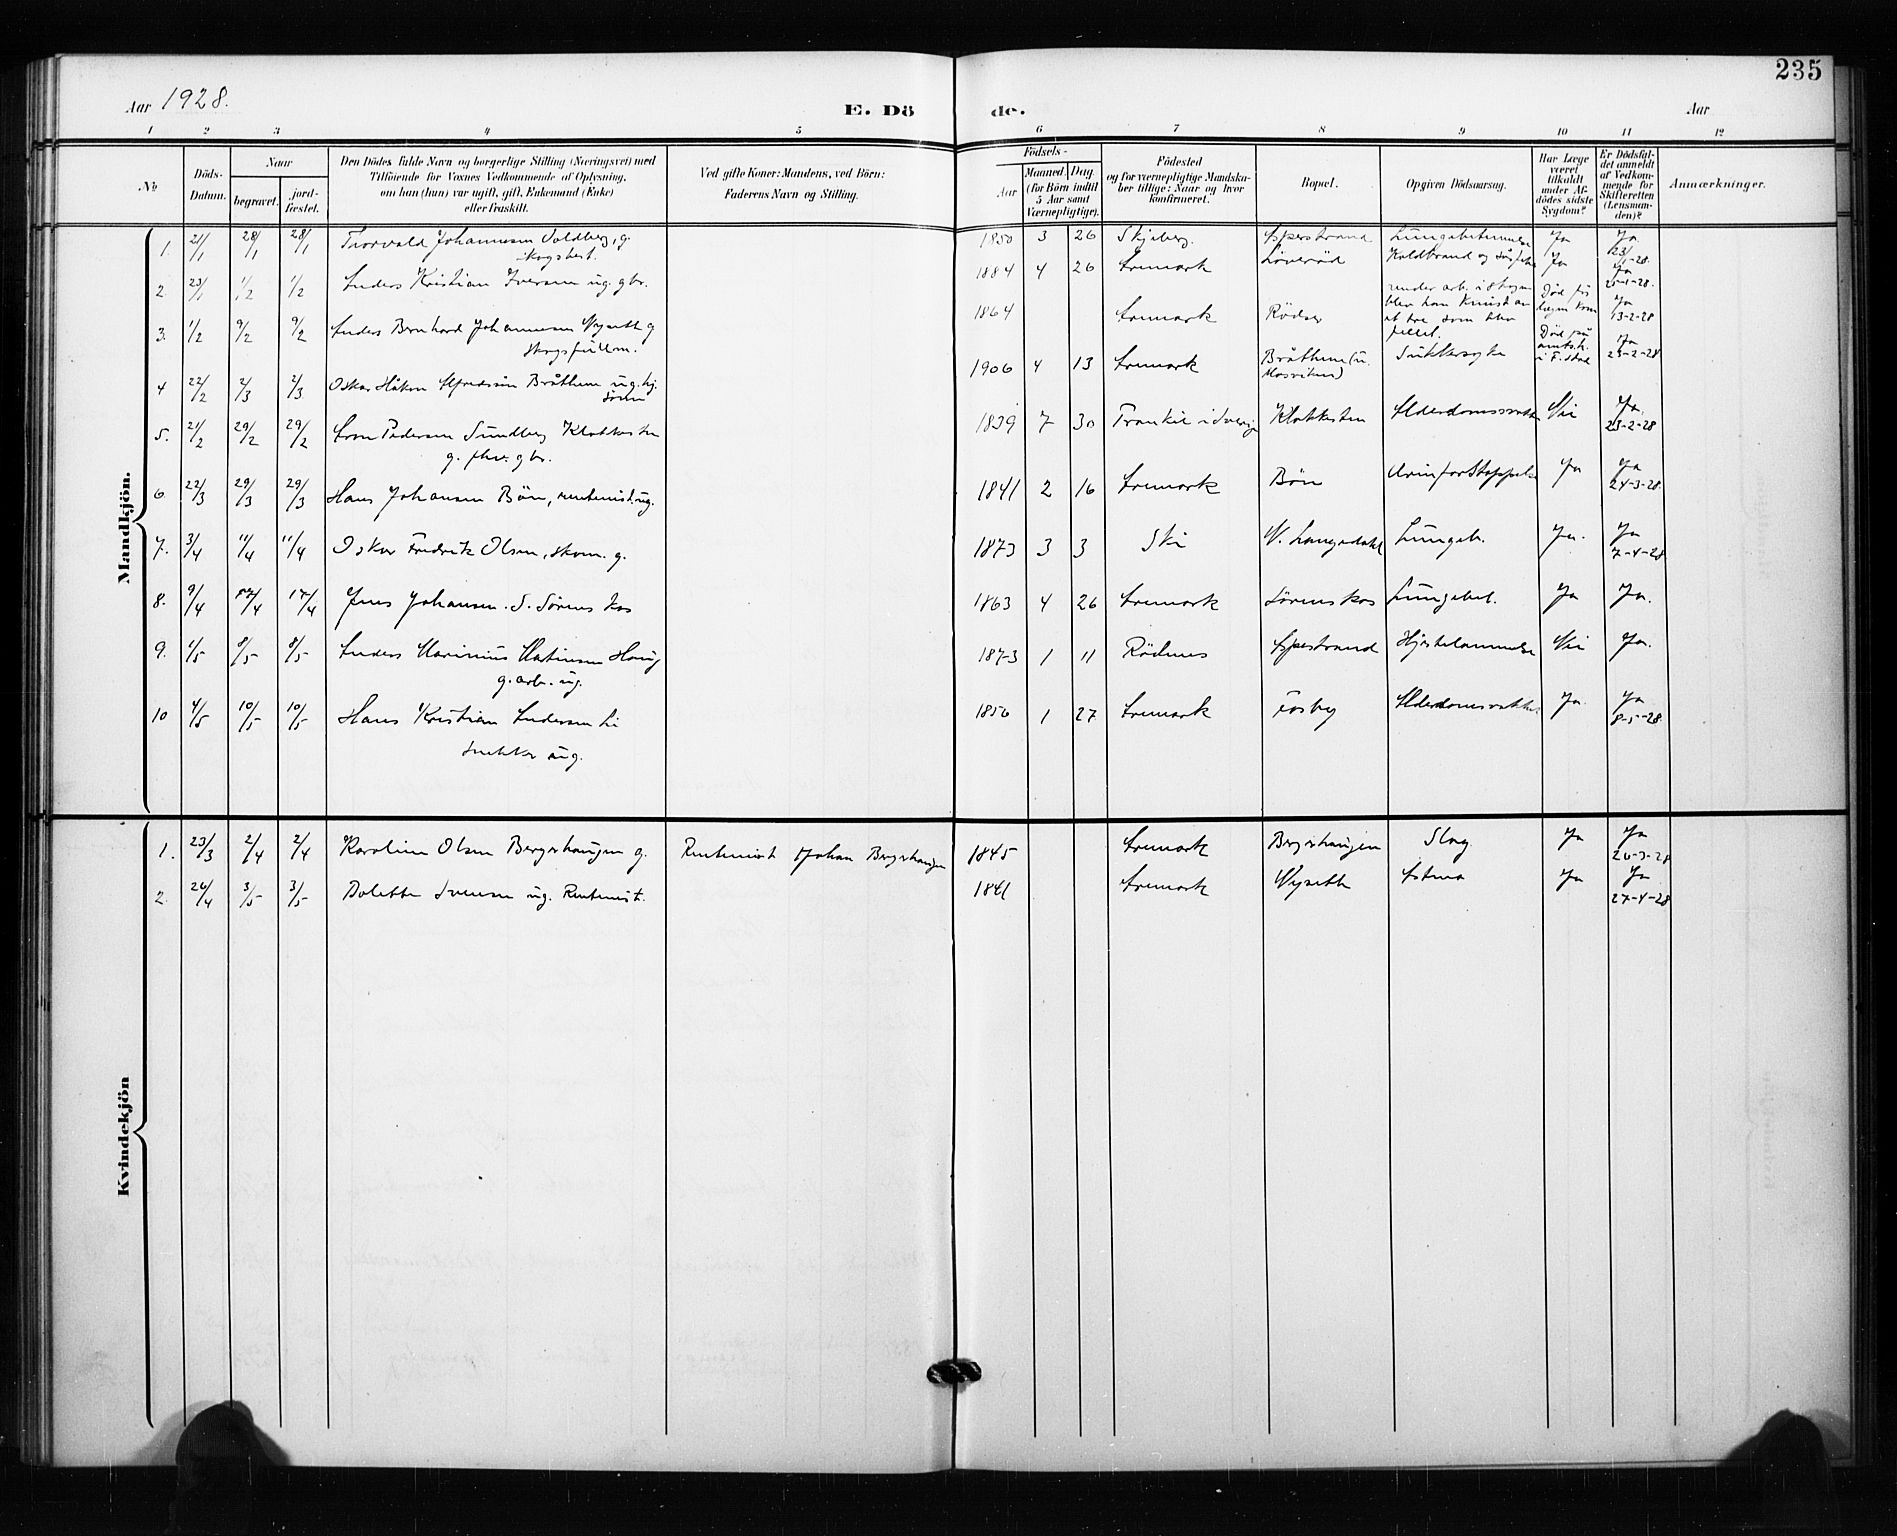 235
Aar 1928.
E. Dö
de.
Aar
1 2 3 4 5 6 7 8 9 10 11 12
No
Döds-
Datum.
Naar
begravet.
jord-
fæstet.
Den Dödes fulde Navn og borgerlige Stilling (Næringsvei) med
Tilföiende for Voxnes Vedkommende af Oplysning,
om han (hun) var ugift, gift, Enkemand (Enke)
eller fraskilt.
Ved gifte Koner: Mandens, ved Börn:
Faderens Navn og Stilling.
Födsels-
Aar
Maaned. Dag.
(for Börn indtil
5 Aar samt
Værnepligtige).
Födested
og for værnepligtige Mandska-
ber tillige: Naar og hvor
konfirmeret.
Bopæl.
Opgiven Dödsaarsag.
Har Læge
været
tilkaldt
under Af-
dödes sidste
Sygdom?
Er Dödsfal-
det anmeldt
af Vedkom-
mende for
Skifteretten
(Lensman-
den)?
Anmærkninger.
Mandkjön.
1. 21/1 28/1 28/1 Thorvald Johannesen Soldberg, g. 1850 3 26 Skjeberg. Ja Ja
23/1-28.
2 23/1 1/2 1/2 Anders Kristian Iversen ug. gbr. 1884 4 26 Aremark Løveröd Koldbrand og Ja Ja
3. 1/2 9/2 9/2 Anders Bernhard Johannesen Nyseth g 1864 Aremark Rödser under arb. i skogen
blev han knust av
et tre som blev
fellet. Ja
13-2-28
4 22/2 2/3 2/3 Oskar Håkon Alfredsen Bråthene ug. 1906 4 13 Aremark Bråthene Sukkersyke Ja
23-2-28
5. 21/2 29/2 29/2 Aron Pedersen Sundberg Klokkesten 1839 7 30 Trankil i Sverige Klokkesten Nei Ja
23-2-28
g. gbr.
6 22/3 29/3 29/3 Hans Johansen Bön, rentenist. ug. 1841 2 16 Aremark Bön Urinforstoppelse Ja Ja
24-3-28.
7. 3/4 11/4 11/4 Oskar Fredrik Olsen, skom. g. 1873 3 3 Ski N. Langsdahl Lungeb. Ja. Ja
7-4-28
8. 9/4 17/4 17/4 Jens Johansen. S. Sörens kos 1863 4 26 Aremark Sörenskos Lungebet. Ja Ja.
9. 1/5 8/5 8/5 Anders Marinius Martinsen Haug 1873 1 11 Rödenes Aspestrand Hjertelammelse Nei Ja.
g. arb. ug.
10 4/5 10/5 10/5 Hans Kristian Andersen Li 1856 1 27 Aremark Fosby Ja. Ja
8-5-28
Snekker ug.
Kvindekjön
1. 23/3 2/4 2/4 Karoline Olsen Bergshaugen g. Rentenist Johan Bergshaugen 1845 Aremark Bergshaugen Slag Ja Ja
26-3-28
2. 26/4 3/5 3/5 Bolette Svensen ug. Rentenist. 1841 Aremark Nyseth Astma Ja Ja
27-4-28